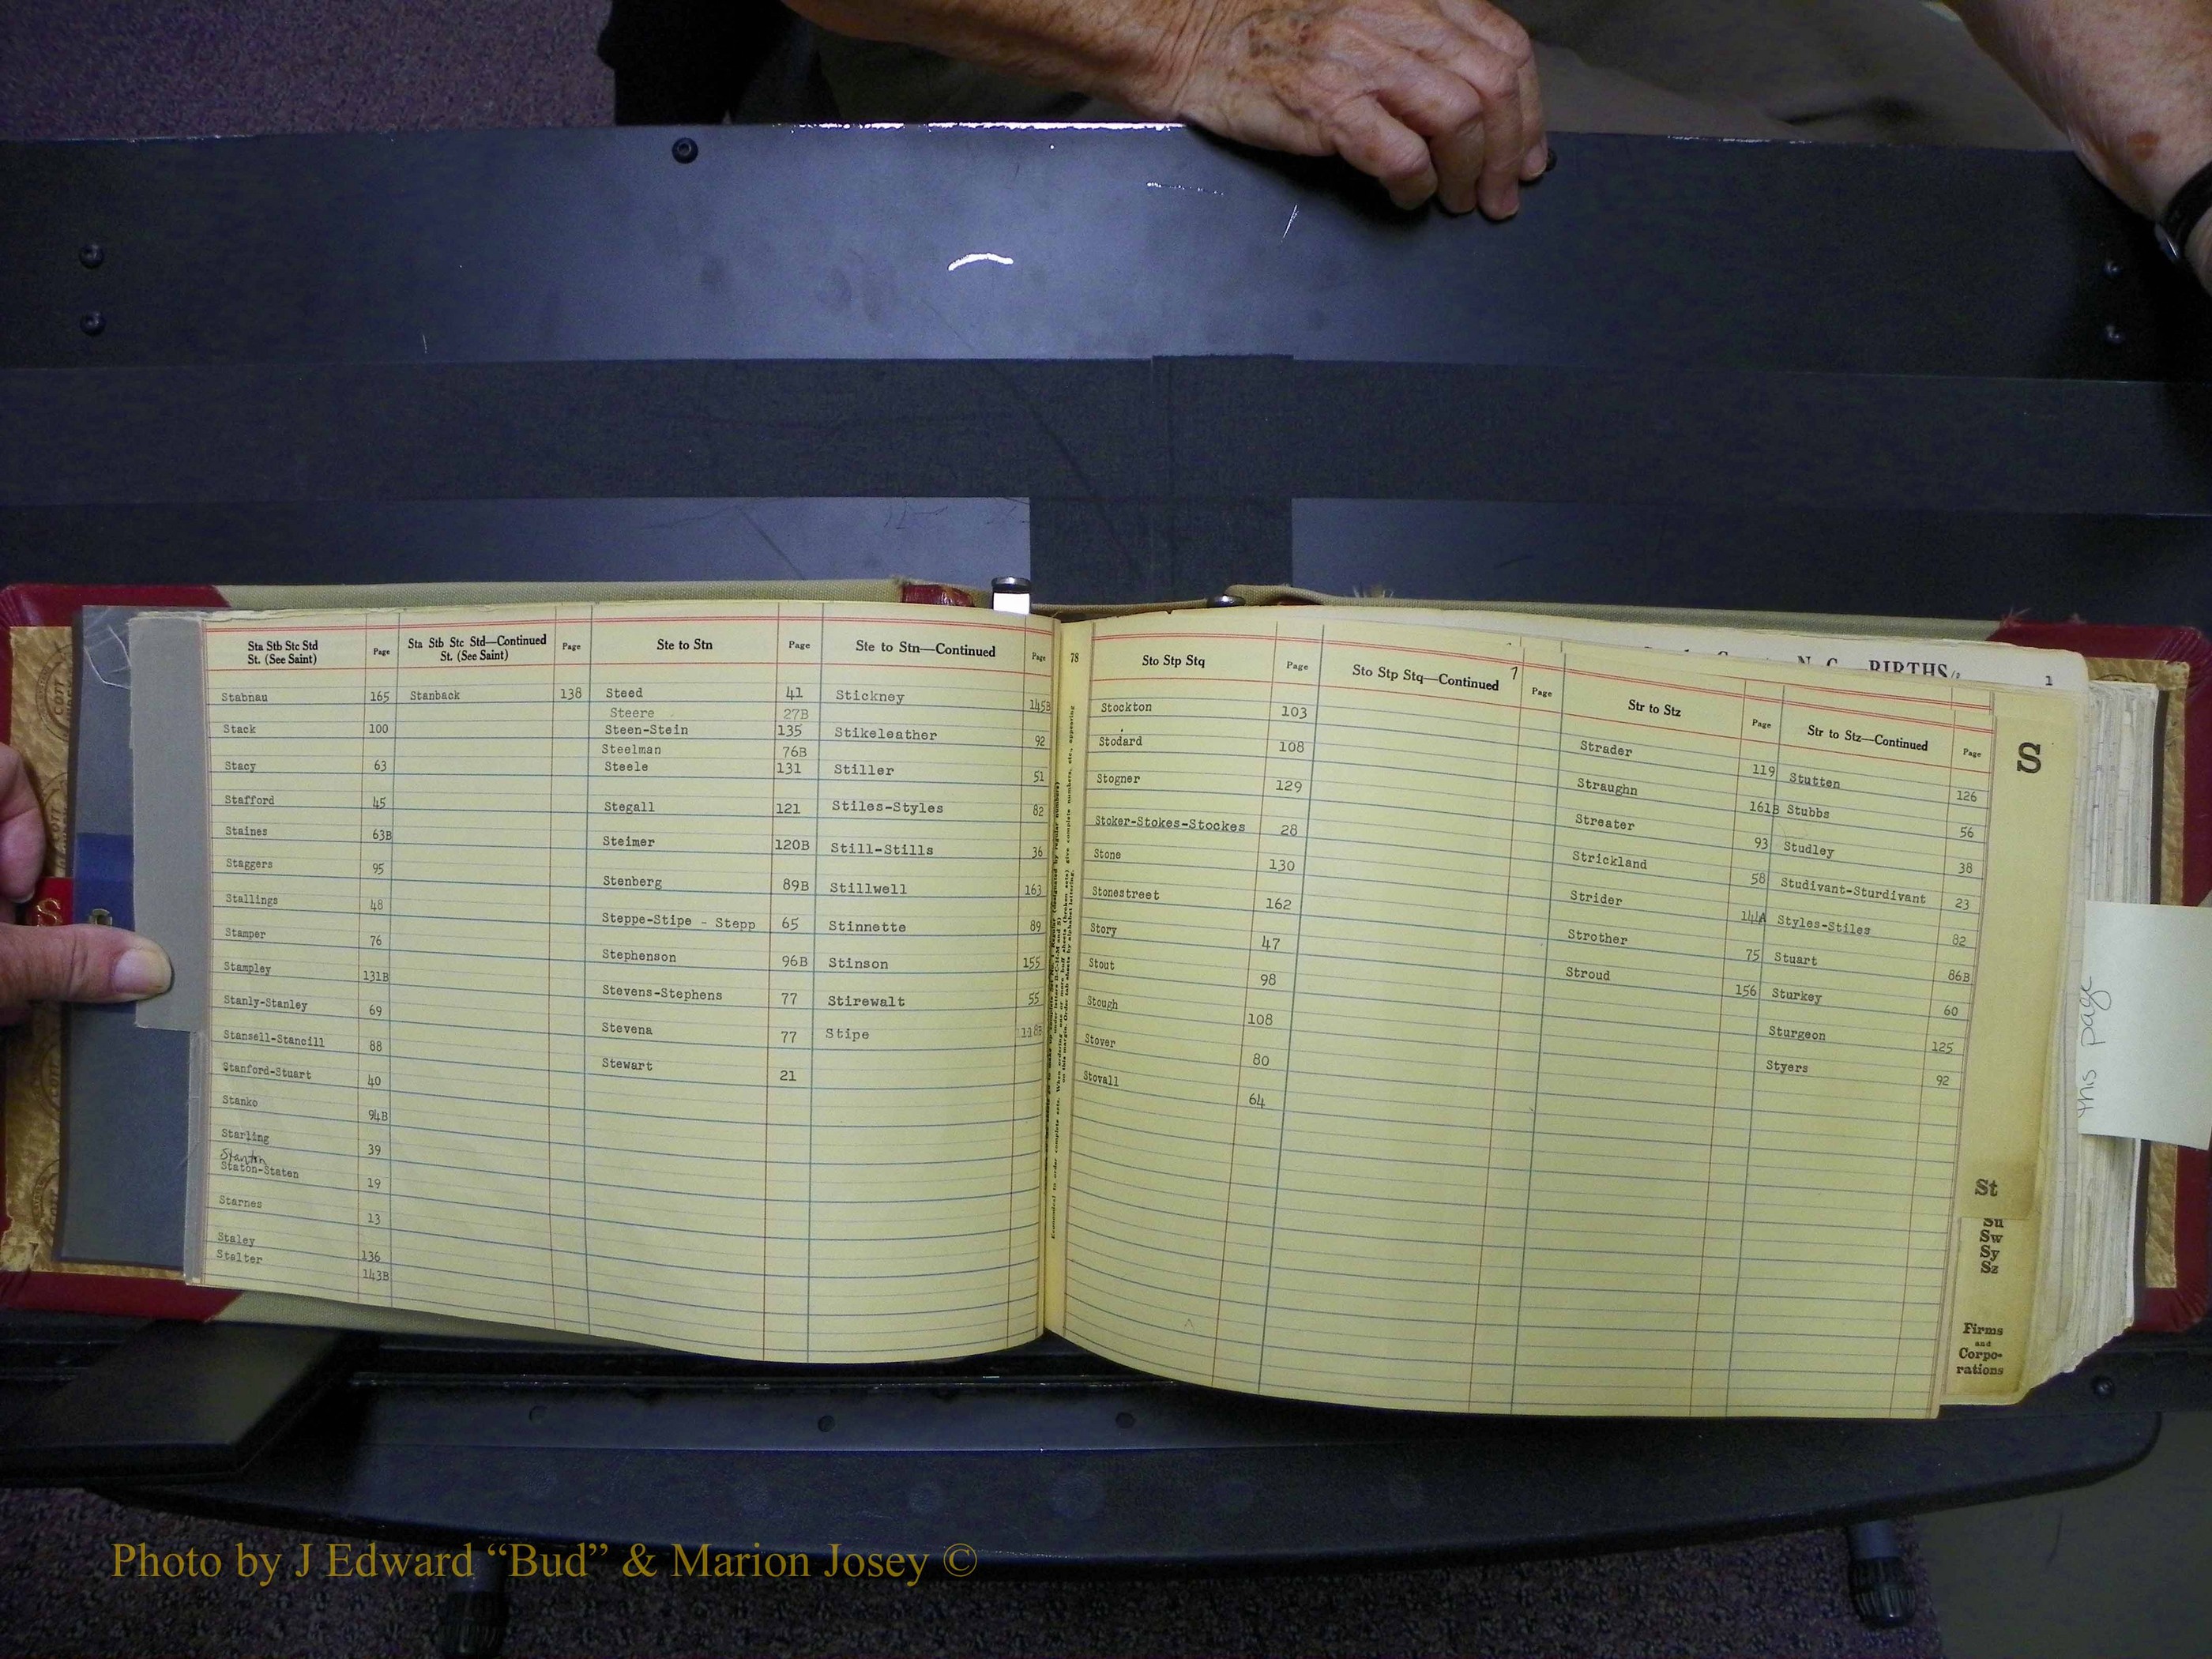 Sta Stb Stc Std
St. (See Saint)
Page
Stabnau 165
Stack 100
Stacy 63
Stafford 45
Staines 63B
Staggers 95
Stallings 48
Stamper 76
Stampley 131B
Stanly-Stanley 69
Stansell-Stancill 88
Stanford-Stuart 40
Stanko 94B
Starling 39
Stanton
Staton-Staten 19
Starnes 13
Staley 136
Stalter 143B
Sta Stb Stc Std—Continued
St. (See Saint)
Page
Stanback 138
Ste to Stn
Page
Steed 41
Steere 27B
Steen-Stein 135
Steelman 76B
Steele 131
Stegall 121
Steimer 120B
Stenberg 89B
Steppe-Stipe - Stepp 65
Stephenson 96B
Stevens-Stephens 77
Stevena 77
Stewart 21
Ste to Stn—Continued
Page
Stickney 145B
Stikeleather 92
Stiller 51
Stiles-Styles 82
Still-Stills 36
Stillwell 163
Stinnette 89
Stinson 155
Stirewalt 55
Stipe 118B
78
Sto Stp Stq
Page
Stockton 103
Stodard 108
Stogner 129
Stoker-Stokes-Stockes 28
Stone 130
Stonestreet 162
Story 47
Stout 98
Stough 108
Stover 80
Stovall 64
Sto Stp Stq—Continued
Page
Str to Stz
Page
Strader 119
Straughn 161B
Streater 93
Strickland 58
Strider 144A
Strother 75
Stroud 156
Str to Stz—Continued
Page
Stutten 126
Stubbs 56
Studley 38
Studivant-Sturdivant 23
Styles-Stiles 82
Stuart 86B
Sturkey 60
Sturgeon 125
Styers 92
N. C. BIRTHS
1
S
St
Su
Sw
Sy
Sz
Firms
and
Corpo-
rations
this page
S
Photo by J Edward “Bud” & Marion Josey ©